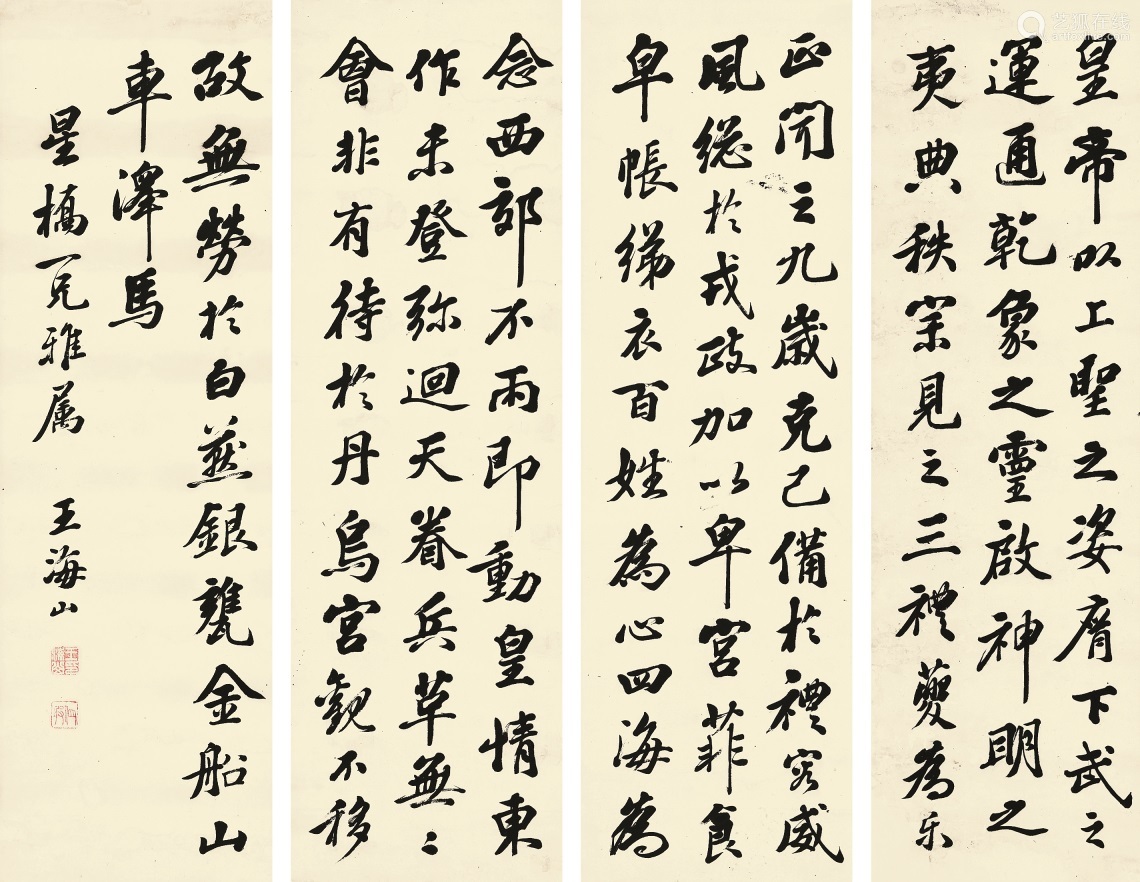 皇帝以上聖之姿膺下武之
運通乾象之靈啟神明之
夷典秩宗見之三禮夔為乐
正聞之九歲克己備於禮容威
風總於戎政加以卑宮菲食
皁帳綈衣百姓為心四海為
念西郊不雨即動皇情東
作未登弥迴天眷兵革無〻
會非有待於丹烏宮觀不移
故無勞於白燕銀甕金船山
車澤馬
星橋一兄雅属
王海山